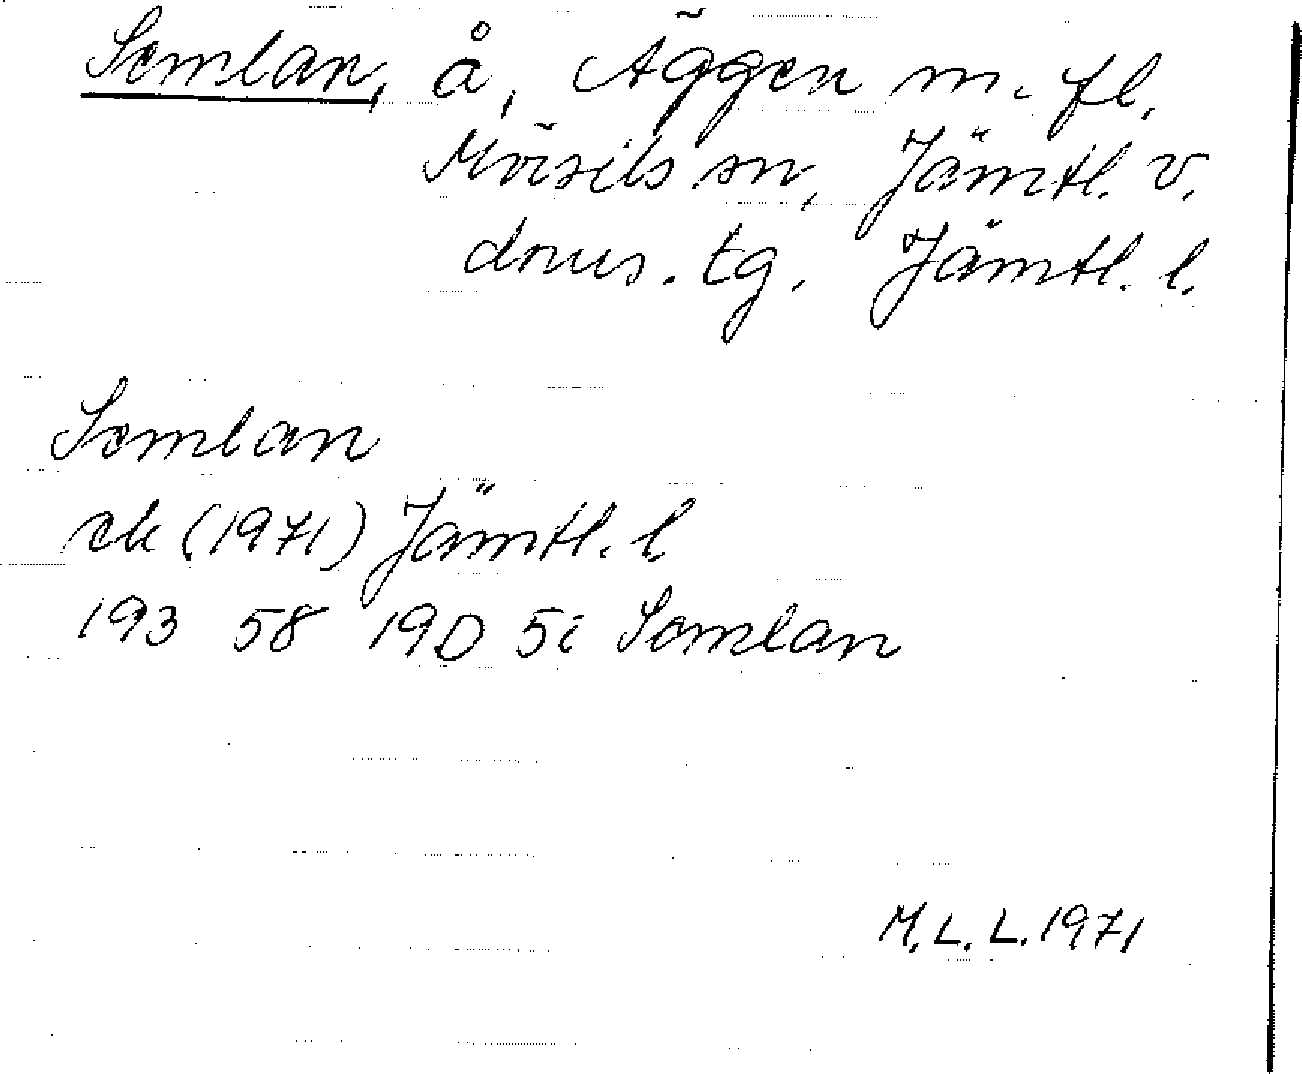 Semlan, å, Äggen m. fl.
Mörsils sn, Jämtl. v.
doms. tg. Jämtl. l.
Semlan
ek (1971) Jämtl. l
193 58 19D 5i Semlan
M. L. L. 1971